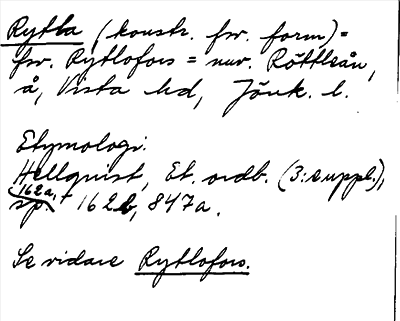 Rytla (konstr. fsv. form) =
fsv. Rytlofors = nuv. Röttleån,
å, Vista hd, Jönk. l.
Etymologi:
Hellquist, Et. ordb. (3: suppl.),
sp. 162a, 162b, 847a.
Se vidare Rytlofors.